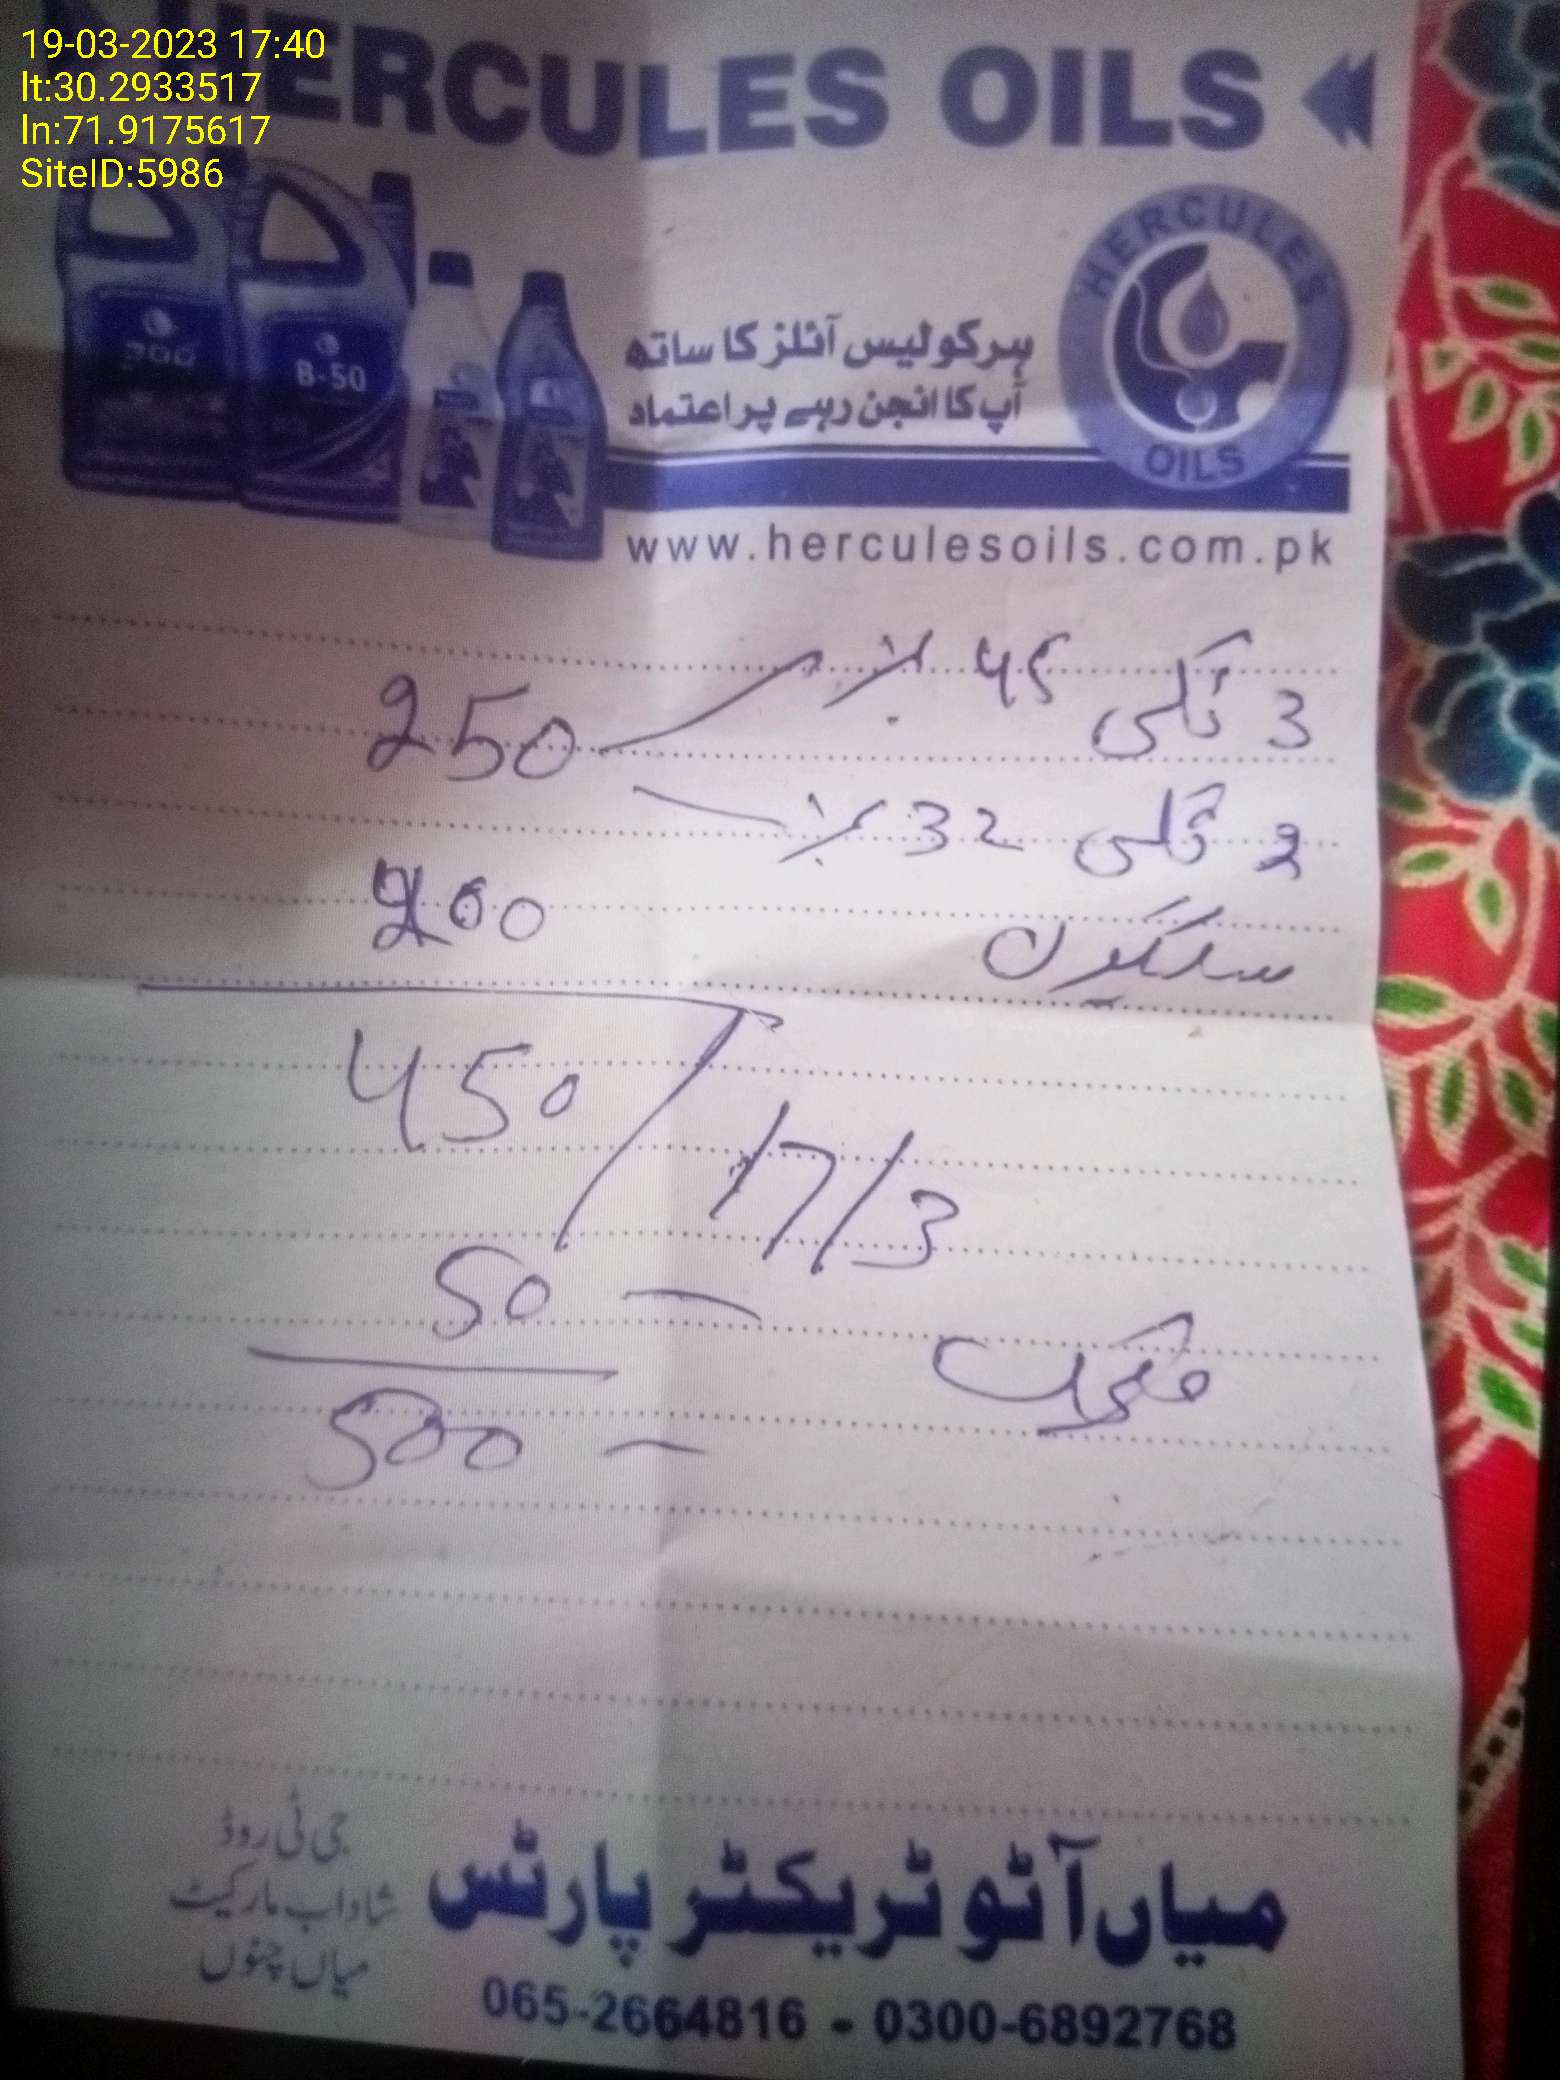 19-03-2023 17:40
lt:30.2933517
ln:71.9175617
SiteID:5986
HERCULES OILS
HERCULES OILS
B-50
ہرکولیس آئلز کا ساتھ
آپ کا انجن رہے پر اعتماد
www.herculesoils.com.pk
3
250
2 32
200
450
17/3
50
500
میاں آٹو ٹریکٹر پارٹس
جی ٹی روڈ
شاداب مارکیٹ
میاں چنوں
065-2664816 - 0300-6892768